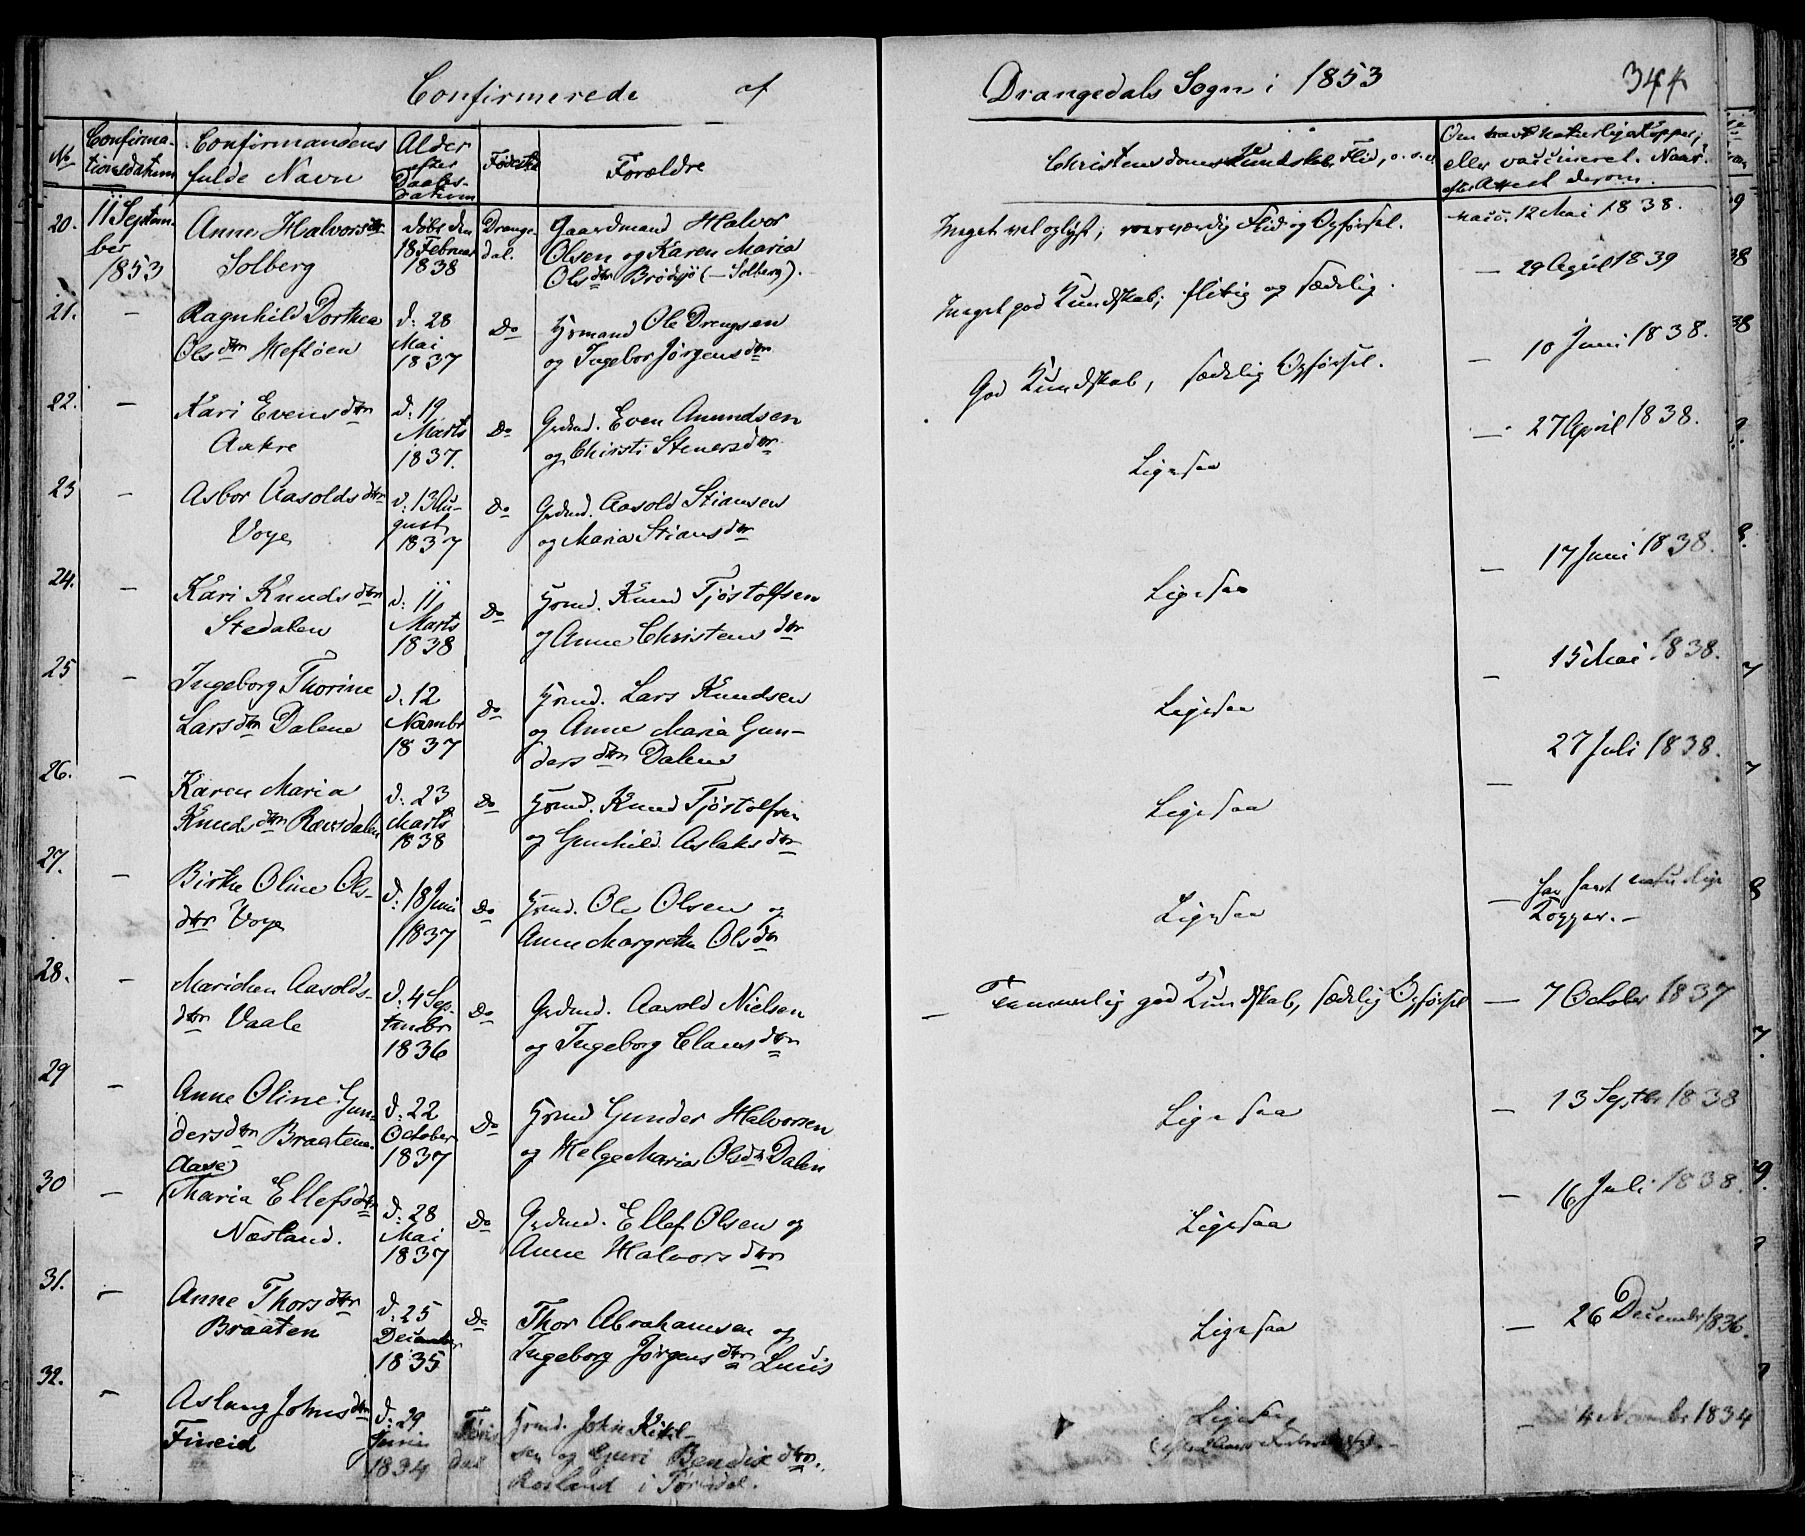 Confirmerede af Drangedals Sogn i 1853 344
No
Confirma-
tionsdatum
Confirmandens
fulde Navn
Alder
efter
Daabs-
datum
Fødested
Forældre
Christendoms Kundskab Flid, o.s.v.
Om havt naturlige Kopper,
eller vaccineret. Naar.
efter Attest derom.
20.
11 Septem-
ber
1853
Anne Halvorsdtr
Solberg
døbt den
18 Februar
1838
Drange-
dal.
Gaardmand Halvor
Olsen og Karen Maria
Olsdtr Brødsjø (- Solberg).
Meget vel oplyst; Flid og Opførsel.
vacc. 12 Mai 1838.
21.
-
Ragnhild Dorthea
Olsdtr Heftøen
d: 28
Mai
1837
Do
Hsmand Ole Drengsen
og Ingebor Jørgensdtr
Meget god Kundskab; flitig og sædelig.
- 29 April 1839
22.
-
Kari Evensdtr
Aakre
d: 19
Marts
1837.
Do
Grdmd. Even Amundsen
og Chirsti Stenersdtr
God Kundskab, sædelig Opførsel.
- 10 Juni 1838.
23
-
Asbor Aasoldsdtr
Voje
d: 13 Au-
gust
1837
Do
Grdmd. Aasold Stiansen
og Maria Stiansdtr
Ligesaa
- 27 April 1838.
24.
-
Kari Knudsdtr
Stedalen
d: 11
Marts
1838
Do
Hsmd. Knud Tjøstolfsen
og Anne Christensdtr
Ligesaa
- 17 Juni 1838.
25
-
Ingeborg Thorine
Larsdtr Dalene
d: 12
Novembr
1837
Do
Hsmd. Lars Knudsen
og Anne Maria Gun-
dersdtr Dalene
Ligesaa
- 15 Mai 1838.
26.
-
Karen Maria
Knudsdtr Rævsdalen
d: 23
Marts
1838
Do
Hsmd. Knud Tjøstolfsen
og Gunhild Aslaksdtr
Ligesaa
- 27 Juli 1838.
27.
-
Birthe Oline Ols-
dtr Voje
d: 18 Juni
1837
Do
Hsmd. Ole Olsen og
Anne Margrethe Olsdtr
Ligesaa
- har havt naturlige
Kopper.-
28.
-
Marichen Aasolds-
dtr Vaale
d: 4 Sep-
tembr
1836
Do
Grdmd. Aasold Nielsen
og Ingeborg Clausdtr
- Temmelig god Kundskab, sædelig Opførsel
- 7 October 1837
29
-
Anne Oline Gun-
dersdtr Braatene
Aase)
d: 22
October
1837
Do
Hsmd Gunder Halvorsen
og Helge Maria Olsdtr Dalen
Ligesaa
- 13 Septbr 1838
30
-
Maria Ellefsdtr
Næsland.
d: 28
Mai
1837
Do
Grdmd. Ellef Olsen og
Anne Halvorsdtr
Ligesaa
- 16 Juli 1838.
31.
-
Anne Thorsdtr
Braaten
d: 25
December
1835
Do
Thor Abrahamsen og
Ingeborg Jørgensdtr
Ligesaa
- 26 December 1836.
32.
-
Aslaug Johnsdtr
Fineid
d: 29
Juni
1834
Tøris
dal
Hsmd. John Kitil-
sen og Guri Bendixdtr.
Rosland i Tørisdal.
Ligesaa
- 4 Novembr 1834